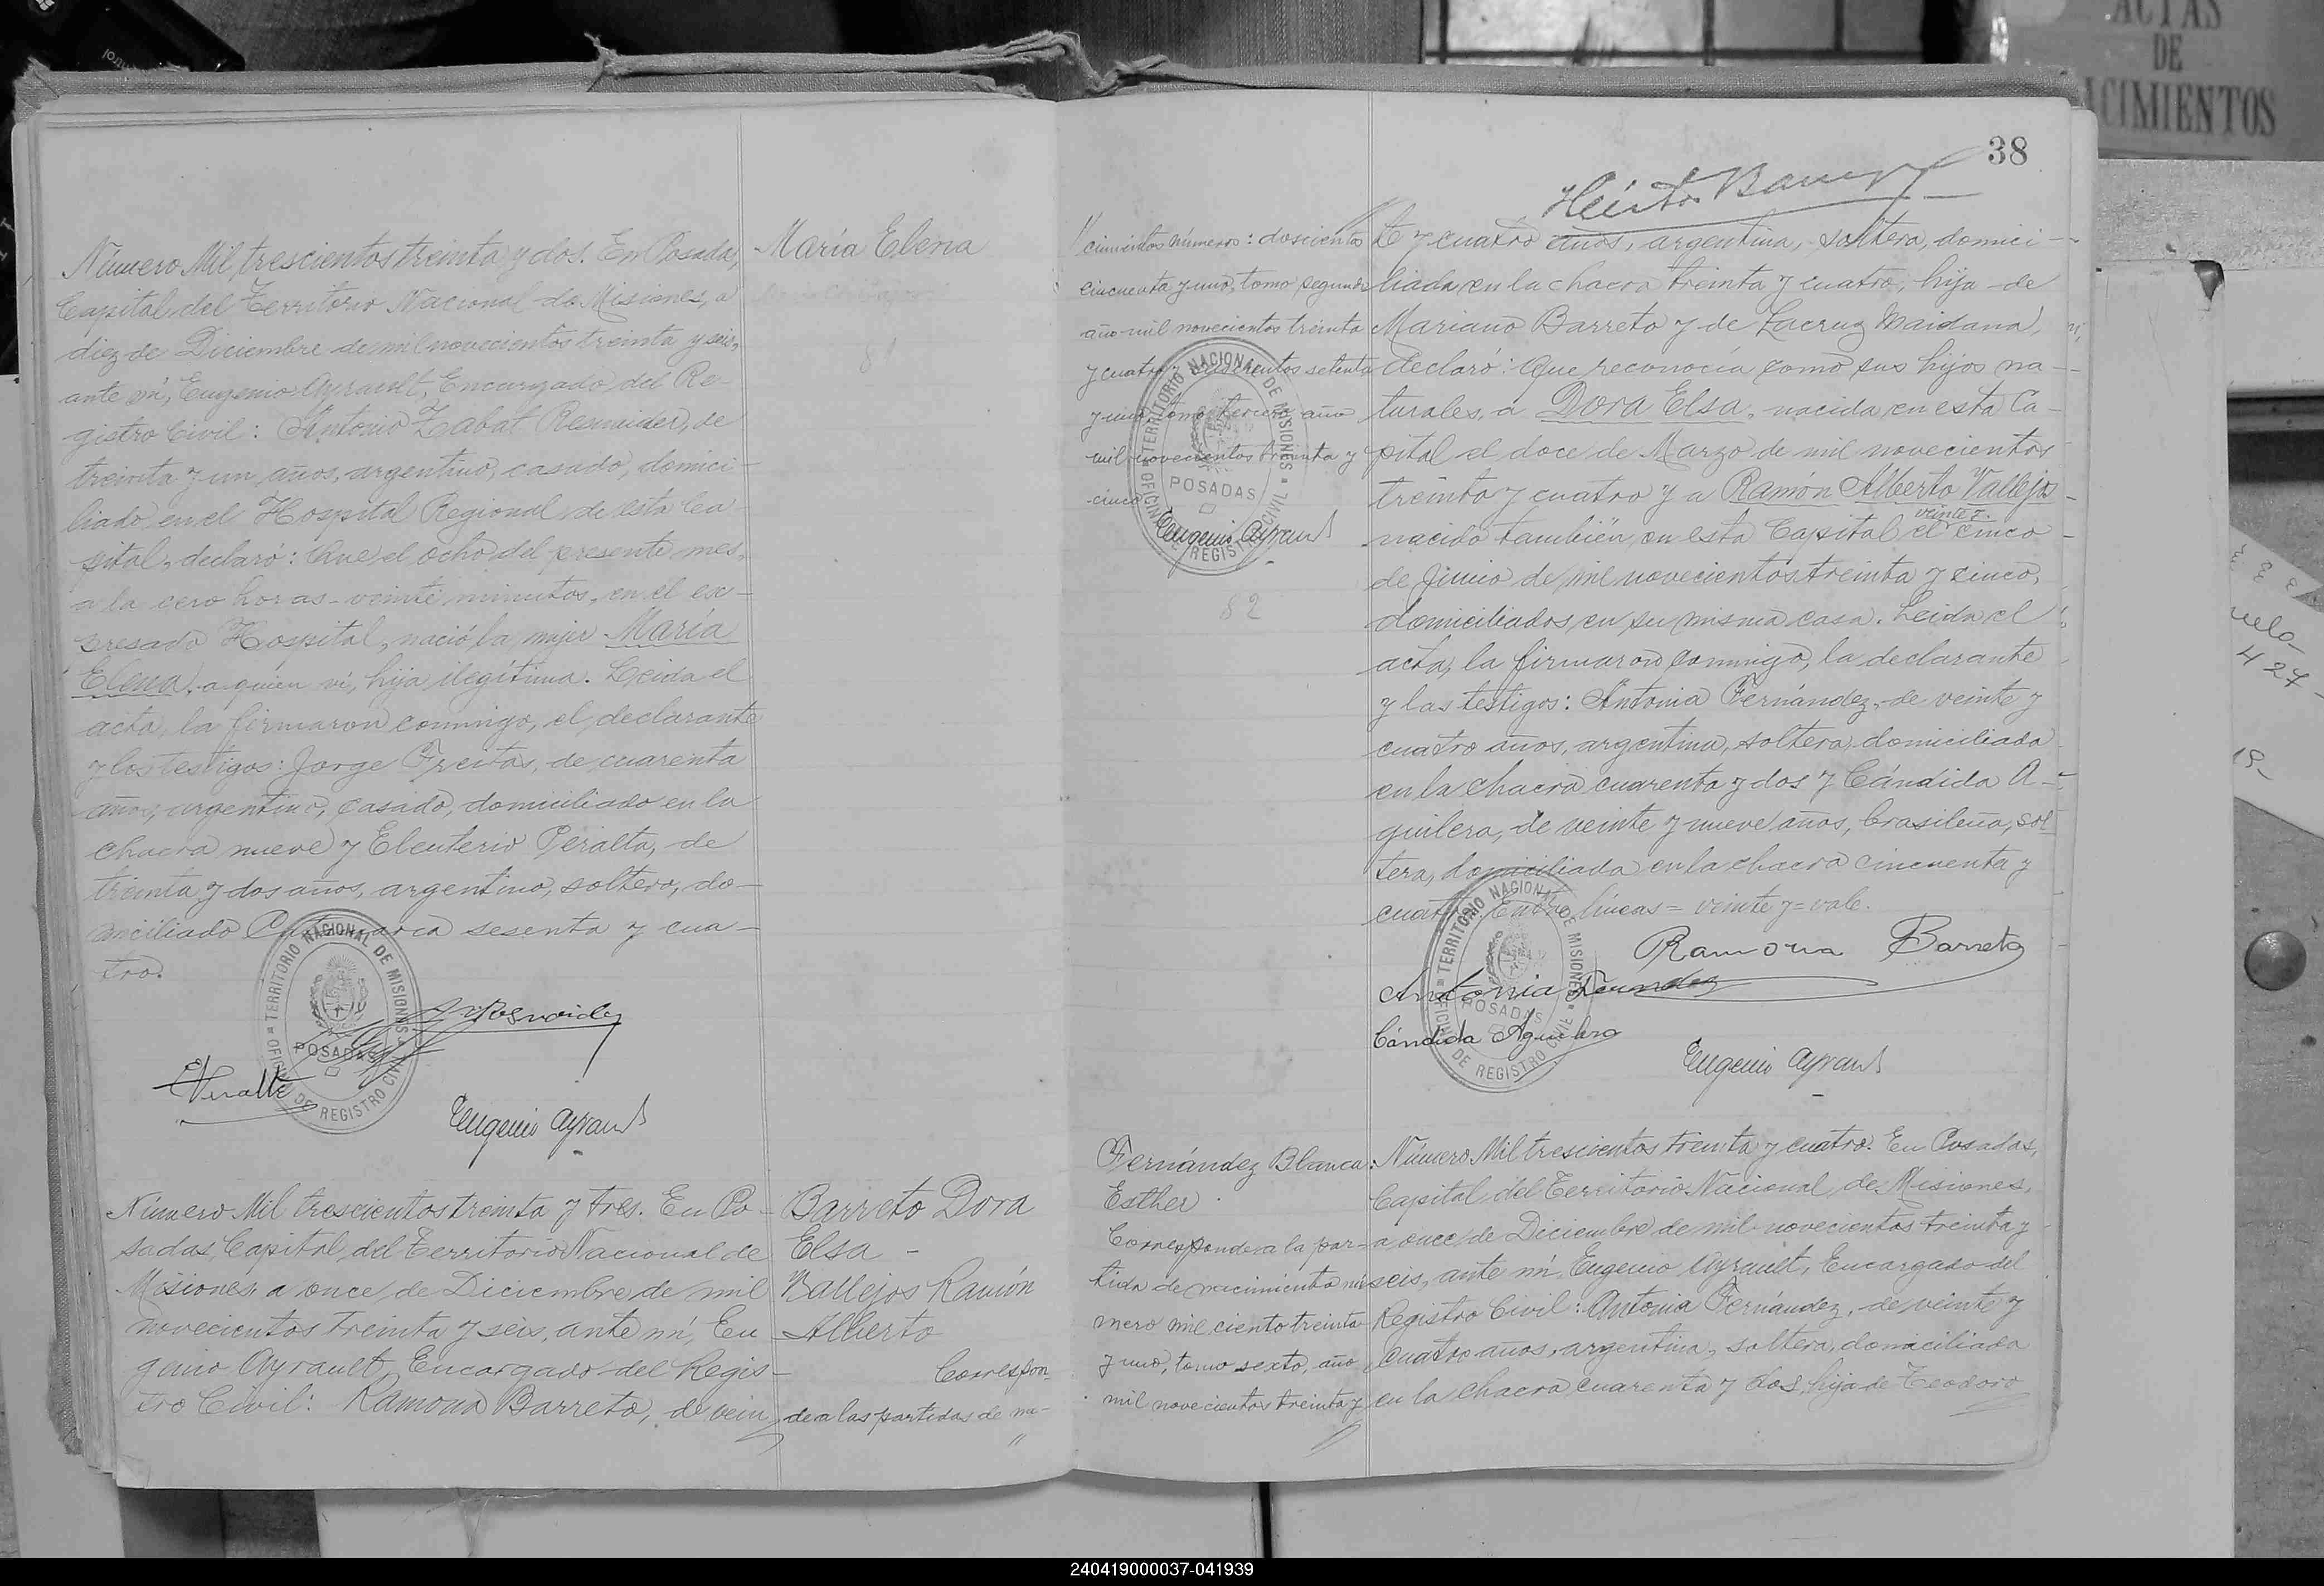 ACTAS
DE
CIMIENTOS
Número Mil trescientos treinta y dos. En Posadas,
Capital del Territorio Nacional de Misiones, a
diez de Diciembre de mil novecientos treinta y seis,
ante mí, Eugenio Ayrault, Encargado del Re-
gistro Civil: Antonio Zabat Resnuider, de
treinta y un años, argentino, casado, domici-
liado en el Hospital Regional de esta Ca-
pital, declaró: Que el ocho del presente mes,
a la cero horas veinte minutos, en el ex-
presado Hospital, nació la mujer María
Elena, a quien ví, hija ilegítima. Leída el
acta, la firmaron conmigo, el declarante
y los testigos: Jorge Freitas, de cuarenta
años, argentino, casado, domiciliado en la
chacra nueve y Eleuterio Peralta, de
treinta y dos años, argentino, soltero, do-
miciliado Catamarca sesenta y cua-
tro.
OFICINA DE REGISTRO CIVIL
TERRITORIO NACIONAL DE MISIONES
POSADAS
EPeralta
Eugenio Ayrault
María Elena
81
Número Mil trescientos treinta y tres. En Po-
sadas, Capital del Territorio Nacional de
Misiones, a once de Diciembre de mil
novecientos treinta y seis, ante mí, Eu-
genio Ayrault, Encargado del Regis-
tro Civil: Ramona Barreto, de vein
Barreto Dora
Elsa -
Vallejos Ramón
Alberto
Correspon-
de a las partidas de na-
"
38
cimientos números: doscientos
cincuenta y uno, tomo segundo
año mil novecientos treinta
y cuatro y seiscientos setenta
y uno, tomo tercero año
mil novecientos treinta y
cinco
Eugenio Ayrault
OFICINA DE REGISTRO CIVIL
TERRITORIO NACIONAL DE MISIONES
POSADAS
82
te y cuatro años, argentina, soltera, domici-
liada en la chacra treinta y cuatro, hija de
Mariano Barreto y de Lacruz Maidana,
declaró: Que reconocía como sus hijos na-
turales, a Dora Elsa, nacida en esta Ca-
pital el doce de Marzo de mil novecientos
treinta y cuatro y a Ramón Alberto Vallejos
veinte y
nacido también en esta Capital el cinco
de Junio de mil novecientos treinta y cinco,
domiciliados en su misma casa. Leída el
acta, la firmaron conmigo, la declarante
y las testigos: Antonia Fernández, de veinte y
cuatro años, argentina, soltera, domiciliada
en la chacra cuarenta y dos y Cándida A-
guilera, de veinte y nueve años, brasileña, sol
tera, domiciliada en la chacra cincuenta y
cuatro. Entre líneas = veinte y = vale.
Ramona Barreto
Antonia Fernandez
Cándida Aguilera
Eugenio Ayrault
OFICINA DE REGISTRO CIVIL
TERRITORIO NACIONAL DE MISIONES
POSADAS
Fernández Blanca
Esther
Corresponde a la par-
tida de nacimiento nú
mero mil ciento treinta
y uno, tomo sexto, año
mil novecientos treinta y
Número Mil trescientos treinta y cuatro. En Posadas,
Capital del Territorio Nacional de Misiones,
a once de Diciembre de mil novecientos treinta y
seis, ante mí, Eugenio Ayrault, Encargado del
Registro Civil: Antonia Fernández, de veinte y
cuatro años, argentina, soltera, domiciliada
en la chacra cuarenta y dos, hija de Teodoro
240419000037-041939